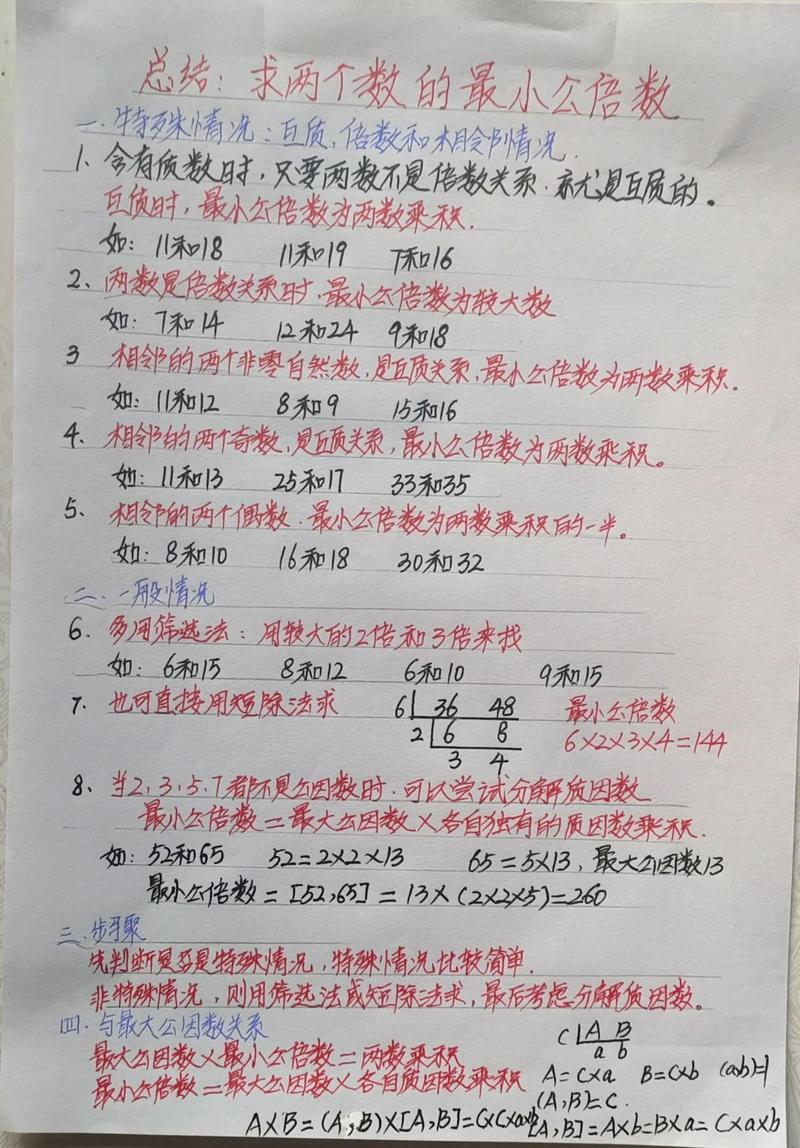 总结：求两个数的最小公倍数
一.特殊情况：互质,倍数和相邻情况.
1、含有质数时，只要两数不是倍数关系.就是互质的。
互质时，最小公倍数为两数乘积.
如：11和18 11和19 7和16
2、两数是倍数关系时.最小公倍数为较大数
如：7和14 12和24 9和18
3 相邻的两个非零自然数,是互质关系,最小公倍数为两数乘积.
如：11和12 8和9 15和16
4、相邻的两个奇数,是互质关系,最小公倍数为两数乘积。
如：11和13 25和17 33和35
5、相邻的两个偶数.最小公倍数为两数乘积的一半。
如：8和10 16和18 30和32
二、一般情况
6、多用筛选法：用较大的2倍和3倍来找
如：6和15 8和12 6和10 9和15
7、也可直接用短除法求 6 36 48 最小公倍数
2 6 8 6×2×3×4=144
3 4
8、当2.3.5.7都不是公因数时.可以尝试分解质因数
最小公倍数=最大公因数×各自独有的质因数乘积.
如：52和65 52=2×2×13 65=5×13，最大公因数13
最小公倍数=[52,65]=13×(2×2×5)=260
三.步骤
先判断是否是特殊情况，特殊情况比较简单.
非特殊情况，则用筛选法或短除法求，最后考虑分解质因数。
四.与最大公因数关系 C A B
a b
最大公因数×最小公倍数=两数乘积
A=C×a B=C×b (a,b)=1
最小公倍数=最大公因数×各自质因数乘积
(A,B)=C.
A×B=(A,B)×[A,B]=C×C×a×b
[A,B]=A×b=B×a=C×a×b